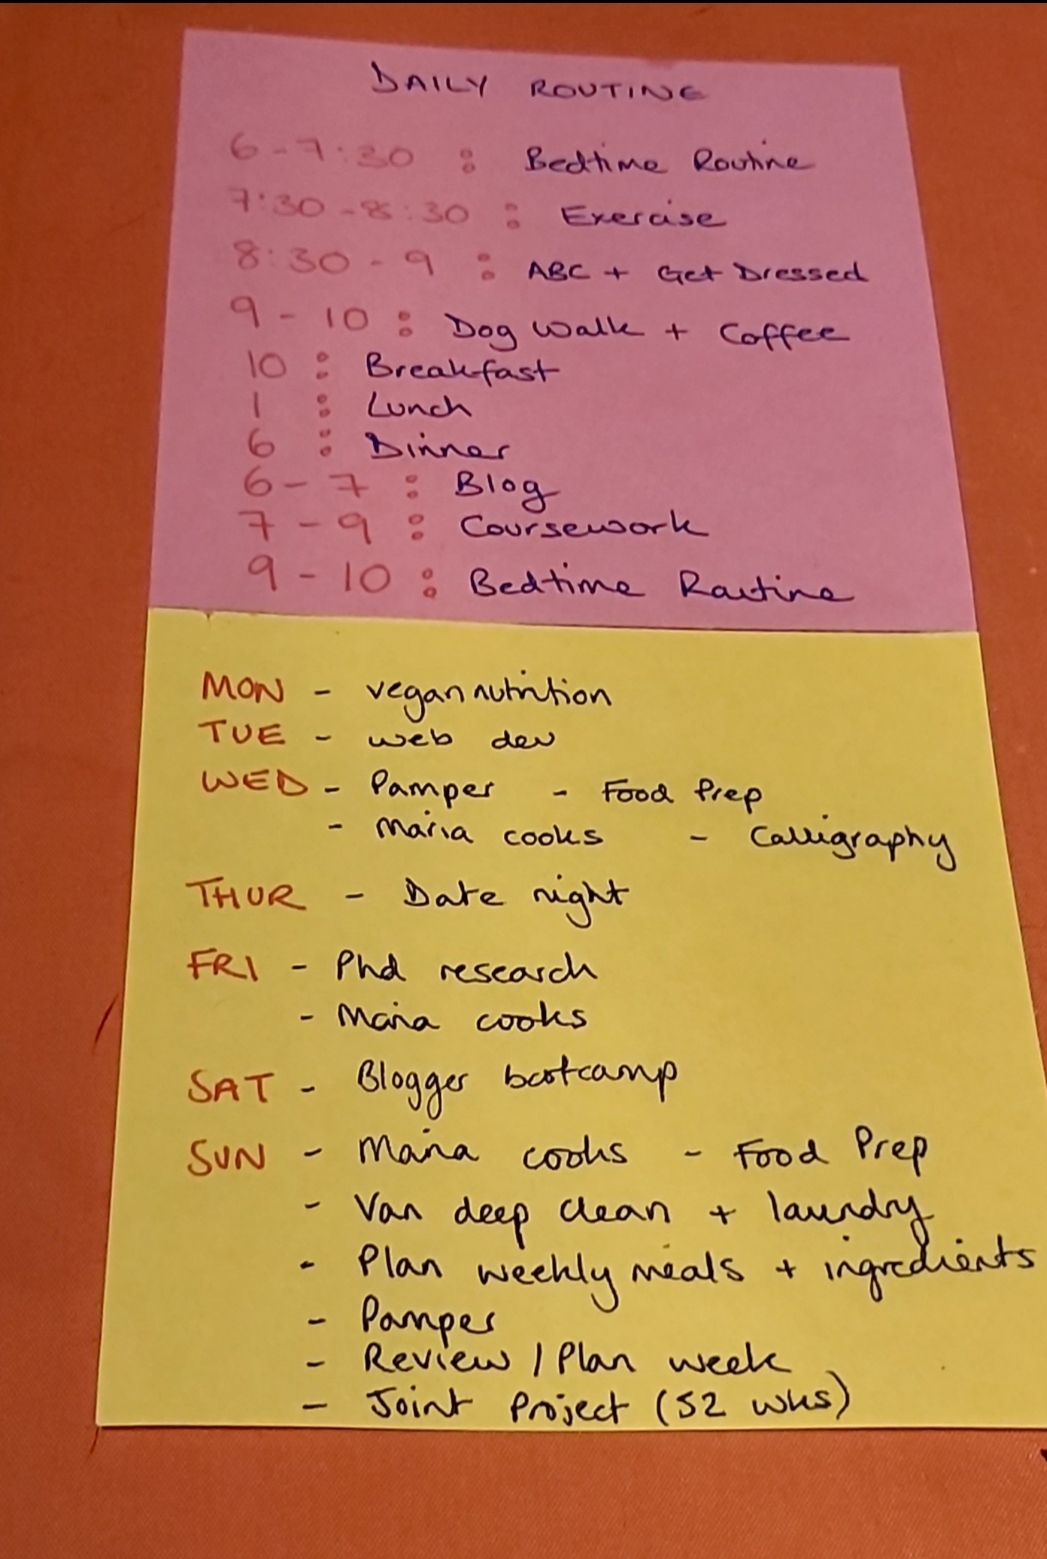 DAILY ROUTINE
6-7:30 : Bedtime Routine
7:30-8:30 : Exercise
8:30-9 : ABC + Get Dressed
9-10 : Dog Walk + Coffee
10 : Breakfast
1 : Lunch
6 : Dinner
6-7 : Blog
7-9 : Coursework
9-10 : Bedtime Routine
MON - vegan nutrition
TUE - web dev
WED - Pamper - Food Prep
- Maria cooks - Calligraphy
THUR - Date night
FRI - Phd research
- Maria cooks
SAT - Blogger bootcamp
SUN - Maria cooks - Food Prep
- Van deep clean + laundry
- Plan weekly meals + ingredients
- Pamper
- Review / Plan week
- Joint Project (52 wks)